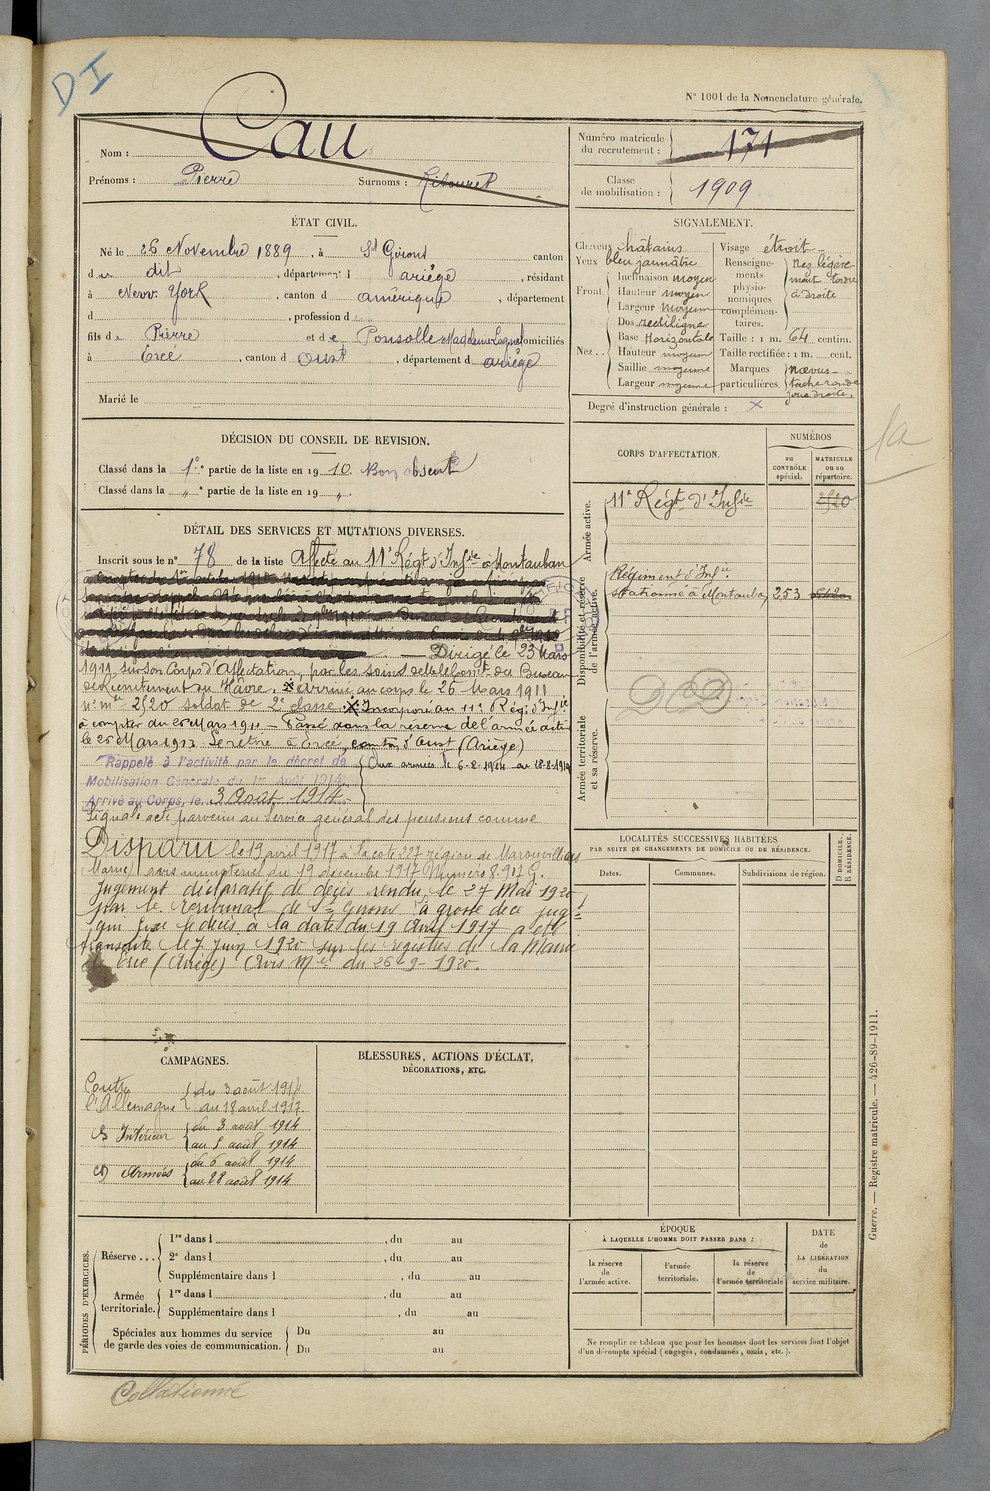 DI
N° 1001 de la Nomenclature générale.
Nom : Cau
Prénoms : Pierre Surnoms :
Numéro matricule du recrutement : 171
Classe de mobilisation : 1909
ÉTAT CIVIL.
Né le 26 Novembre 1889, à St Girons canton
du dit, département d ariège, résidant
à New York, canton d amérique, département
d , profession d
fils de Pierre et de Ponsolle Madeleine domiciliés
à Ercé, canton d Oust, département d ariège
Marié le
SIGNALEMENT.
Cheveux châtains
Yeux bleu jaunâtre
Front. Inclinaison moyen
Hauteur moyen
Largeur moyen
Nez. Dos rectiligne
Base Horizontale
Hauteur moyenne
Saillie moyenne
Largeur moyenne
Visage étroit
Renseignements physionomiques complémentaires. nez légèrement tordu à droite
Taille : 1 m. 64 centim.
Taille rectifiée : 1 m. cent.
Marques particulières. nœvus tache ronde joue droite.
Degré d'instruction générale : X
DÉCISION DU CONSEIL DE REVISION.
Classé dans la 1e partie de la liste en 1910. Bon absent
Classé dans la " partie de la liste en 19 "
DÉTAIL DES SERVICES ET MUTATIONS DIVERSES.
Inscrit sous le n° 78 de la liste Affecté au 11e Régt d'Infie à Montauban
Dirigé le 23 Mars
1911, sur son Corps d'Affectation, par les soins de Mr le Comt du Bureau
de Recrutement du Hâvre. X arrivé au corps le 26 Mars 1911
n° mle 2520 soldat de 2e classe. X Incorporé au 11e Rég. d'Infie
à compter du 26 Mars 1911 — Passé dans la réserve de l'armée active
le 26 Mars 1913 Se retire à Ercé, canton d'Oust (Ariège)
Rappelé à l'activité par le décret de
Mobilisation Générale du 1er Août 1914.
Arrivé au Corps, le 3 Août 1914
Aux armées le 6-8-1914 au 28-8-1914
Signalé acte parvenu au Service général des pensions comme
Disparu le 19 avril 1917 à la cote 227 région de
(Marne) avis ministériel du 19 décembre 1917 Numéro
Jugement déclaratif de décès rendu le 27 Mai 1920
par le Tribunal de St Girons la grosse de ce jugt
qui fixe le décès à la date du 19 Avril 1917 a été
transcrite le 7 Juin 1920 sur les registres de la Mairie
de Ercé (Ariège) Avis Mel du 26-9-1920.
CORPS D'AFFECTATION.
NUMÉROS
au CONTRÔLE spécial.
MATRICULE ou au répertoire.
Armée active.
11e Régt d'Infie 2520
Disponibilité et réserve de l'armée active.
Régiment d'Infie
stationné à Montauban 253
Armée territoriale et sa réserve.
LOCALITÉS SUCCESSIVES HABITÉES
PAR SUITE DE CHANGEMENTS DE DOMICILE OU DE RÉSIDENCE.
Dates. Communes. Subdivisions de région. D DOMICILE. R RÉSIDENCE.
CAMPAGNES.
Contre l'Allemagne du 3 août 1914
au 18 avril 1917.
Intérieur du 3 août 1914
au 5 août 1914
Armées du 6 août 1914
au 28 août 1914
BLESSURES, ACTIONS D'ÉCLAT,
DÉCORATIONS, ETC.
PÉRIODES D'EXERCICES.
Réserve . . . 1re dans l , du au
2e dans l , du au
Supplémentaire dans l , du au
Armée territoriale. 1re dans l , du au
Supplémentaire dans l , du au
Spéciales aux hommes du service de garde des voies de communication. Du au
Du au
ÉPOQUE
À LAQUELLE L'HOMME DOIT PASSER DANS :
la réserve de l'armée active.
l'armée territoriale.
la réserve de l'armée territoriale
DATE de LA LIBÉRATION du service militaire.
Ne remplir ce tableau que pour les hommes dont les services font l'objet
d'un décompte spécial (engagés, condamnés, omis, etc.).
Guerre. — Registre matricule. — 426-89-1911.
Collationné